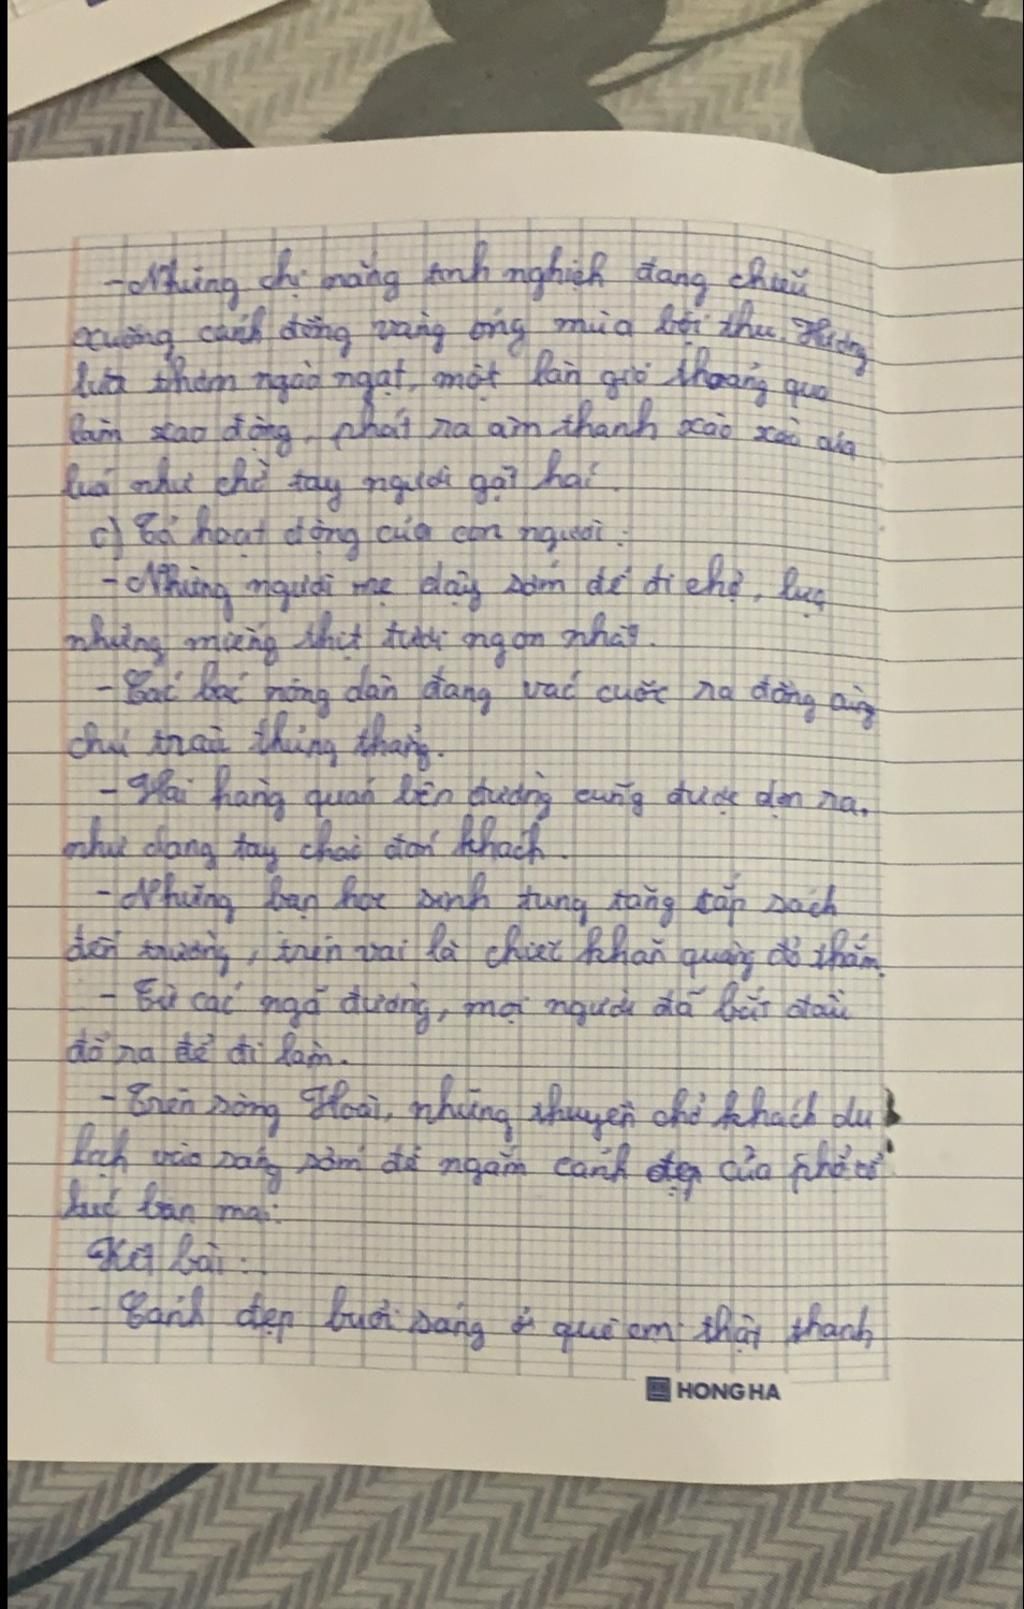 - Những chị nắng tinh nghịch đang chiếu
xuống cánh đồng vàng óng mùa bội thu. Hương
lúa thơm ngào ngạt, một làn gió thoảng qua
làm xao động, phát ra âm thanh xào xạc của
lúa như chờ tay người gặt hái.
c) Tả hoạt động của con người:
- Những người mẹ dậy sớm để đi chợ, lựa
những miếng thịt tươi ngon nhất.
- Các bác nông dân đang vác cuốc ra đồng cùng
chú trâu thủng thẳng.
- Hai hàng quán bên đường cũng được dọn ra,
như dang tay chào đón khách.
- Những bạn học sinh tung tăng cắp sách
đến trường, trên vai là chiếc khăn quàng đỏ thắm.
- Từ các ngả đường, mọi người đã bắt đầu
đổ ra để đi làm.
- Trên sông Hoài, những thuyền chở khách du
lịch vào sáng sớm để ngắm cảnh đẹp của phố cổ
lúc ban mai.
Kết bài:
- Cảnh đẹp buổi sáng ở quê em thật thanh
HONG HA